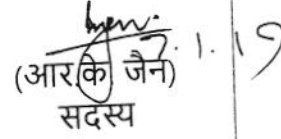 7.1.19
(आर.के जैन)
सदस्य